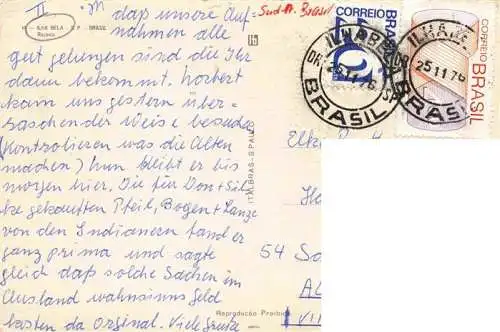 II
ILHA BELA - S P - BRASIL
daß unsere Auf-
nahmen alle
gut gelungen sind die Ihr
dann bekommt. Norbert
kam uns gestern über-
raschender Weise besuchen
(kontrolieren was die Alten
machen) nun bleibt er bis
morgen hier. Die für Don + Silk-
ke gekauften Pfeil, Bogen + Lanze
von den Indianern fand er
ganz prima und sagte
gleich daß solche Sachen im
Ausland wahnsinns Geld
kosten da Orginal. Viele Grüße
Süd-A. Brasil
CORREIO
BRASIL
CORREIO
BRASIL
ILHABELA
25 11 76
BRASIL
25 11 76
BRASIL
ITALBRAS - S. PAULO
Elke
54
Reprodução Proibida